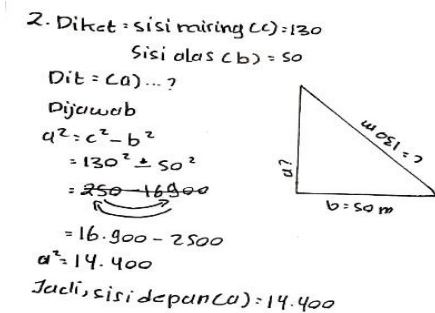 2. Diket : sisi miring (c) : 130
Sisi alas (b) = 50
Dit = (a) ... ?
Dijawab
a² = c² - b²
= 130² ± 50²
= 250 - 16900
= 16.900 - 2500
a² = 14.400
Jadi, sisi depan (a) : 14.400
a?
c = 130 m
b = 50 m